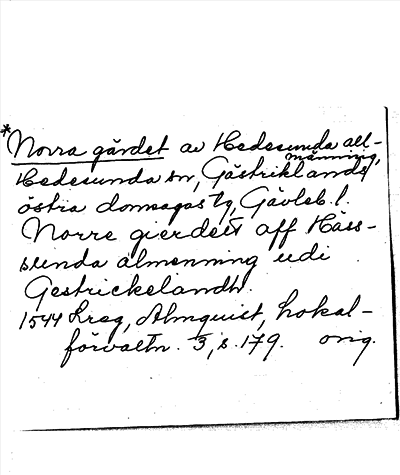 *Norra gärdet av Hedesunda all-
männing,
Hedesunda sn, Gästriklands
östra domsagas tg, Gävleb. l.
Norre gierdett aff Häss-
sunda almenning udi
Gestrickelandh.
1544 Lreg, Almquist, Lokal-
förvaltn. 3, s. 179. orig.